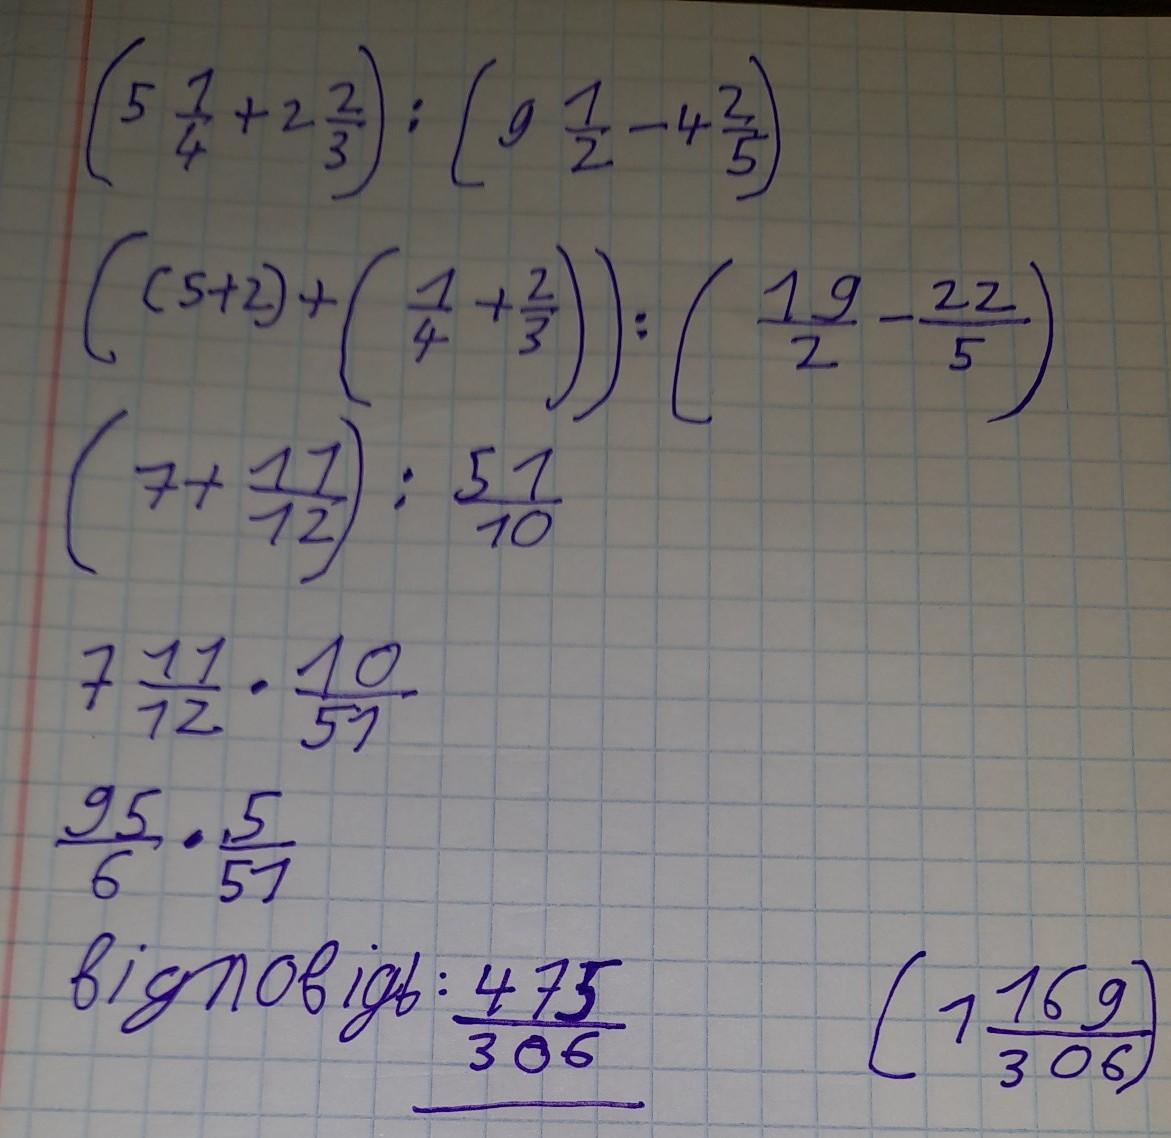 (5 1/4 + 2 2/3) : (9 1/2 - 4 2/5)
((5+2) + (1/4 + 2/3)) : (19/2 - 22/5)
(7 + 11/12) : 51/10
7 11/12 · 10/51
95/6 · 5/51
відповідь: 475/306 (1 169/306)